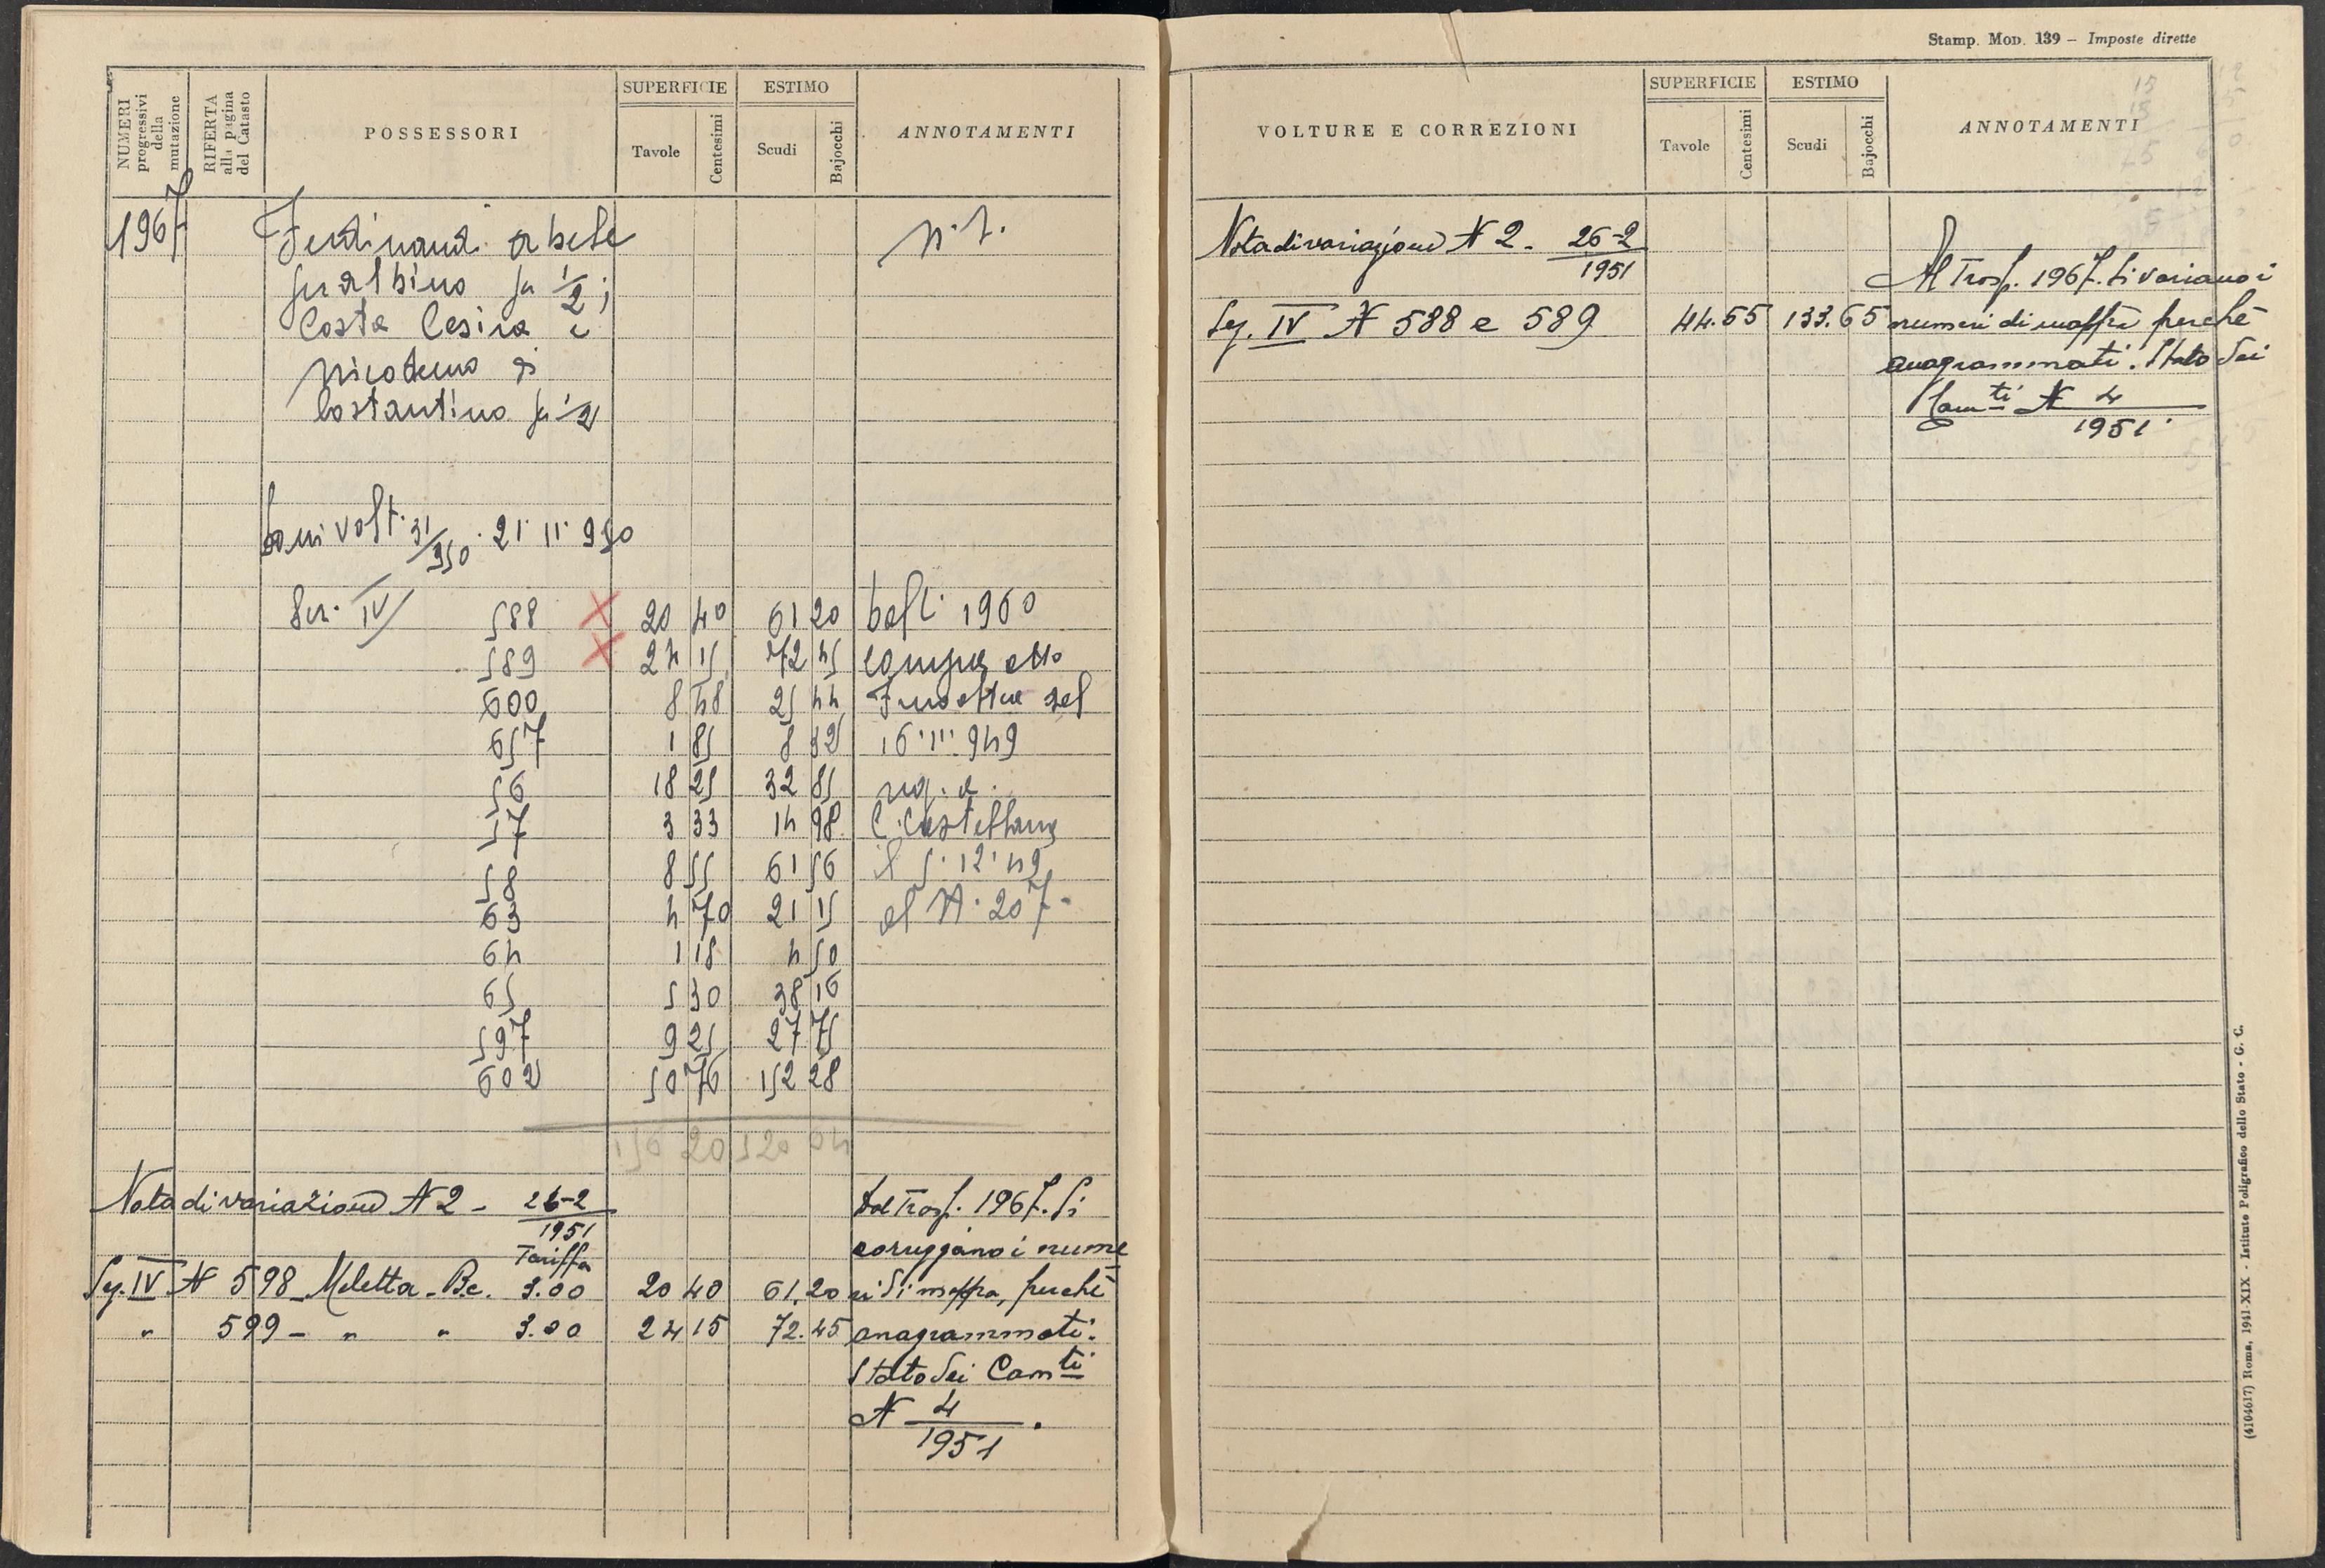 NUMERI progressivi della mutazione
RIFERTA alla pagina del Catasto
POSSESSORI
SUPERFICIE
Tavole
Centesimi
ESTIMO
Scudi
Bajocchi
ANNOTAMENTI
1967
Ferdinandi
fu Albino fu 1/2;
Costa Cesira e
Nicodemo di
Costantino fu 1/2
volt. 31/950 . 21 11 950
Sez. IV 588 X 20 40 61 20 1960
589 X 24 15 72 45
600 8 48 25 44
657 1 85 8 32 16 111 949
56 18 25 32 85 reg. a
57 3 33 14 98 C. Castellana
58 8 55 61 56 il 5. 12. 49
63 4 70 21 15 al N. 207-
64 1 18 4 50
65 5 30 38 16
597 9 25 27 75
602 50 76 152 28
156 20 520 04
Nota di variazione N 2 - 26-2/1951
Tariffa
Sez. IV N 598 - Meletta - Bc. 3.00 20 40 61.20
" 599 - " " 3.00 24 15 72.45
Dal Trasf. 1967. Si
correggono i nume
ri di mappa, perchè
anagrammati.
Stato dei Cam.ti
N 4/1951.
Stamp. Mod. 139 – Imposte dirette
VOLTURE E CORREZIONI
SUPERFICIE
Tavole
Centesimi
ESTIMO
Scudi
Bajocchi
ANNOTAMENTI
Nota di variazione N 2 - 26-2/1951
Sez. IV N 588 e 589 44.55 133.65
Al Trasf. 1967. Si variano i
numeri di mappa perchè
anagrammati. Stato dei
Cam.ti N 4/1951.
(4104617) Roma, 1941-XIX - Istituto Poligrafico dello Stato - G. C.